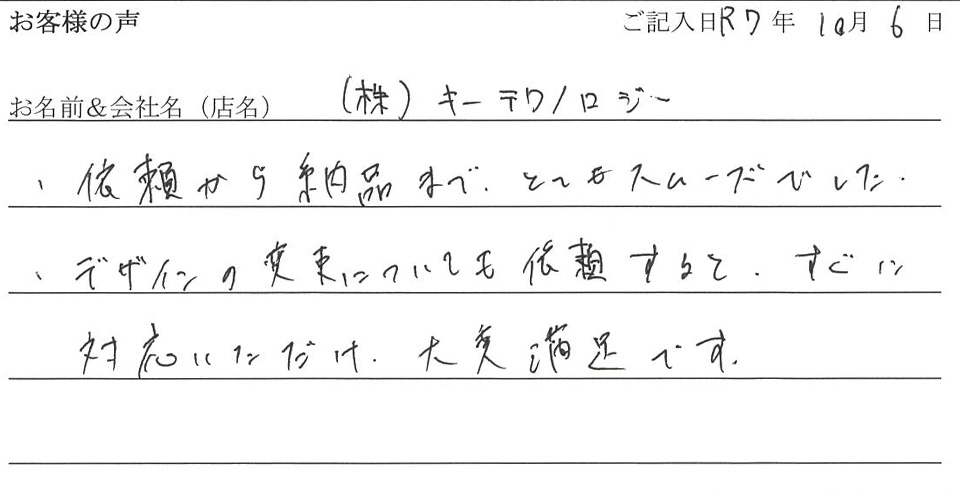 お客様の声 ご記入日R7年 10月 6日
お名前&会社名（店名） （株）キーテクノロジー
、依頼から納品まで、とてもスムーズでした。
、デザインの変更についても依頼すると、すぐに
対応いただけ、大変満足です。